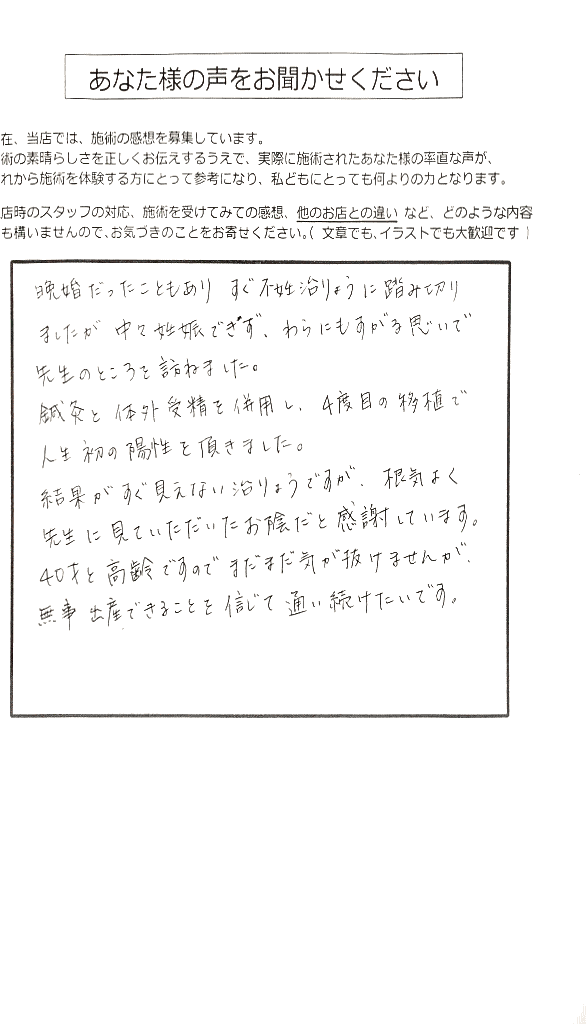 あなた様の声をお聞かせください
在、当店では、施術の感想を募集しています。
術の素晴らしさを正しくお伝えするうえで、実際に施術されたあなた様の率直な声が、
れから施術を体験する方にとって参考になり、私どもにとっても何よりの力となります。
店時のスタッフの対応、施術を受けてみての感想、他のお店との違い など、どのような内容
も構いませんので、お気づきのことをお寄せください。( 文章でも、イラストでも大歓迎です )
晩婚だったこともあり すぐ不妊治りょうに踏み切り
ましたが 中々妊娠できず、わらにもすがる思いで
先生のところを訪ねました。
鍼灸と体外受精を併用し、4度目の移植で
人生初の陽性を頂きました。
結果がすぐ見えない治りょうですが、根気よく
先生に見ていただいたお陰だと感謝しています。
40才と高齢ですのでまだまだ気が抜けませんが、
無事出産できることを信じて通い続けたいです。